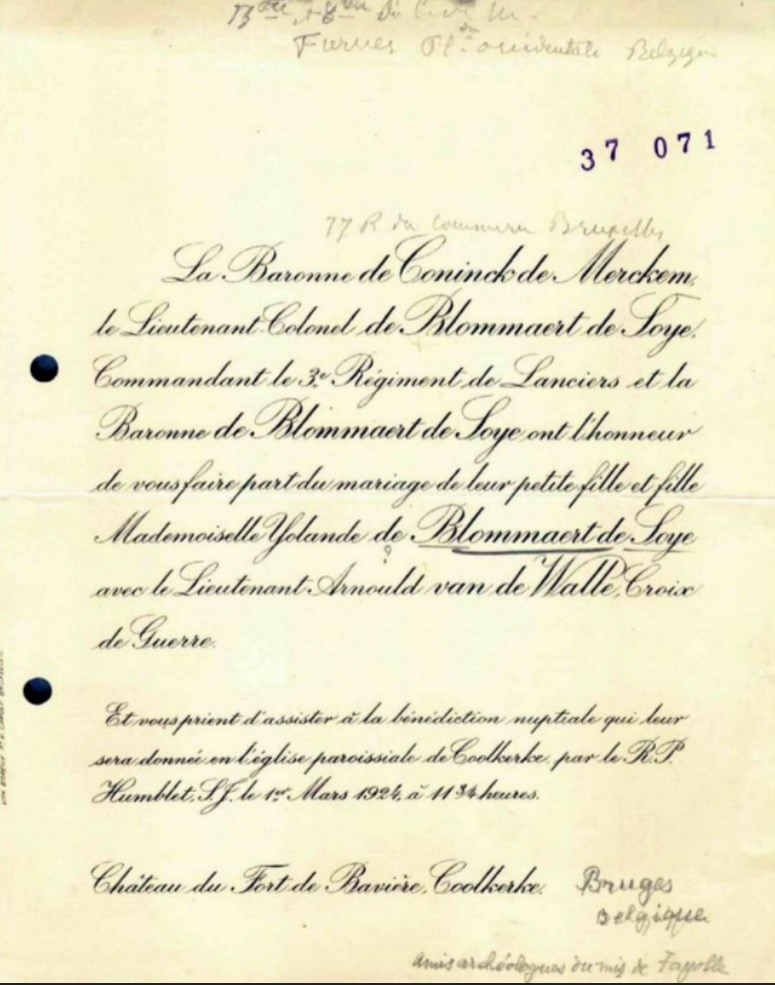 Furnes Fl. occidentale Belgique
37 071
77 R du Commerce Bruxelles
La Baronne de Coninck de Merckem,
le Lieutenant-Colonel de Blommaert de Soye,
Commandant le 3e Régiment de Lanciers et la
Baronne de Blommaert de Soye ont l'honneur
de vous faire part du mariage de leur petite fille et fille
Mademoiselle Yolande de Blommaert de Soye
?
avec le Lieutenant Arnould van de Walle, Croix
de Guerre.
Et vous prient d'assister à la bénédiction nuptiale qui leur
sera donnée en l'église paroissiale de Coolkerke, par le R.P.
Humblet, S.J. le 1er Mars 1924, à 11 3/4 heures.
Château du Fort de Bavière, Coolkerke.
Bruges
Belgique
amis archéologues du mis de Fayolle